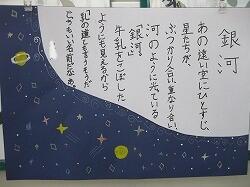 銀河
あの遠い空にひとすじ、
星たちが、
ぶつかり合い重なり合い、
河のように光っている
銀河。
牛乳をこぼした
ようにも見えるから
「乳の道」ともいうそうだ
とてもいい名前だなあ。